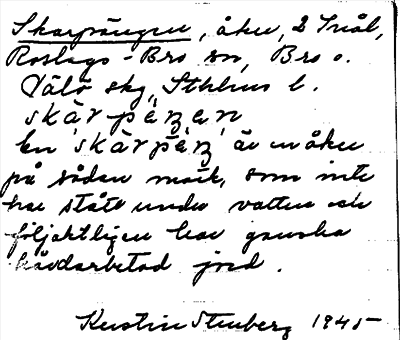 Skarpängen, åker, 2 Snål,
Roslags-Bro sn, Bro o.
Välö skg, Sthlms l.
skàrpéŋen
En skàrpéŋ är en åker
på sådan mark, som inte
har stått under vatten och
följaktligen har ganska
hårdarbetad jord.
Kerstin Stenberg 1945